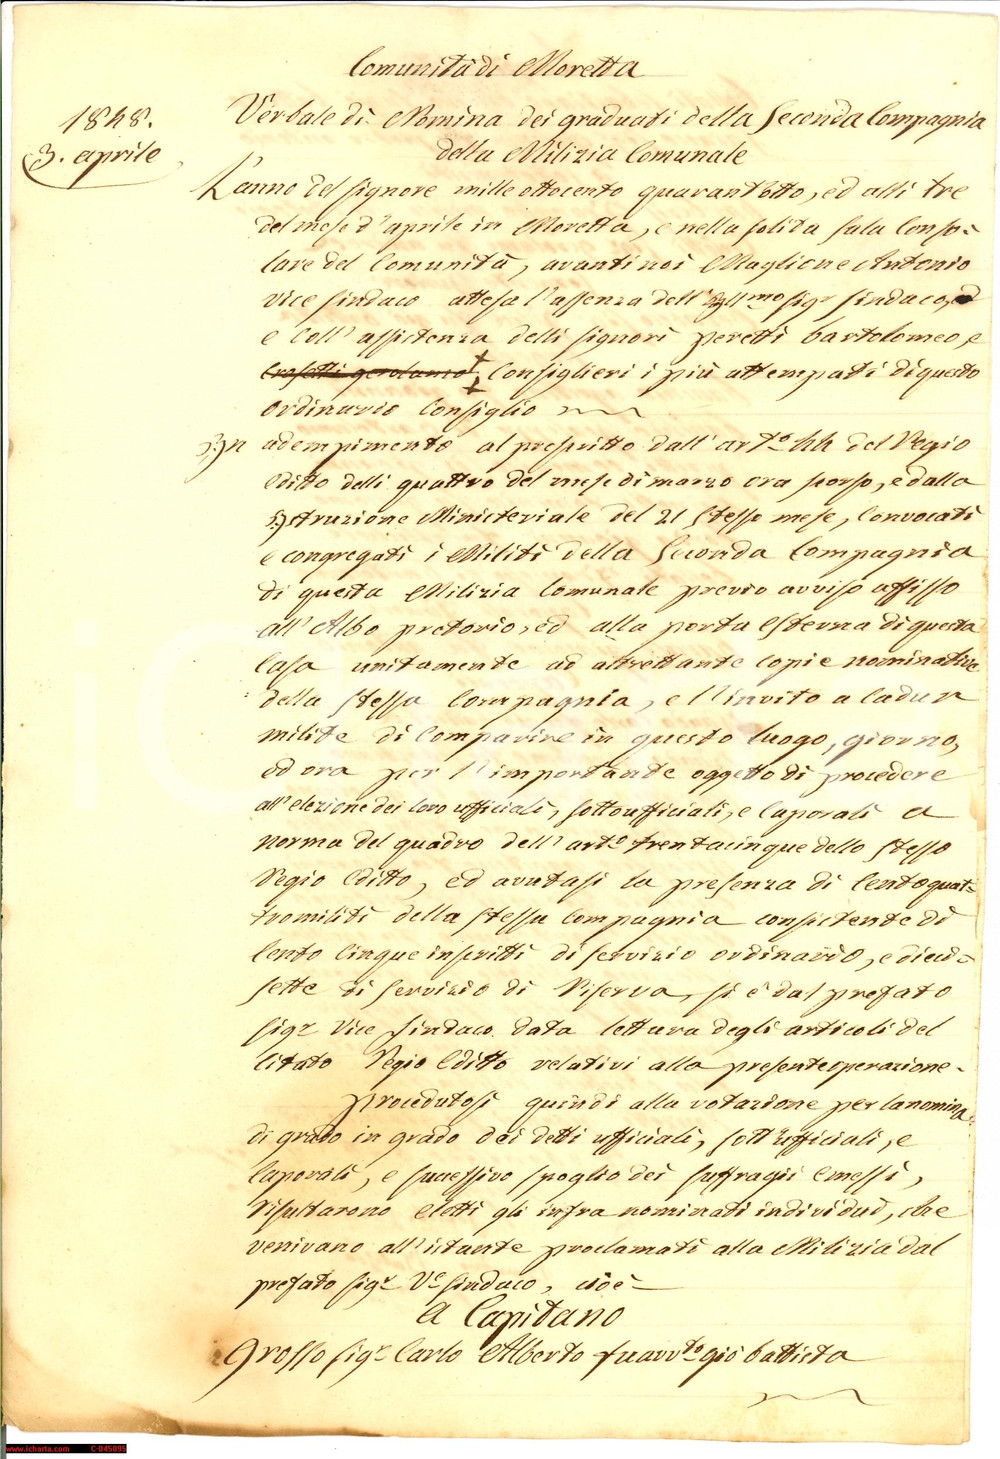 Comunità di Moretta
1848.
3. aprile
Verbale di Nomina dei graduati della Seconda Compagnia
della Milizia Comunale
L'anno del signore mille ottocento quarant'otto, ed alli tre
del mese d'aprile in Moretta, e nella solita sala Conso-
lare del Comunità, avanti noi Maglione Antonio
vice sindaco attesa l'assenza dell'Ill.mo sig.r sindaco,
e coll'assistenza delli signori peretti bartolomeo, e
Crosetti gerolamo Consiglieri i più attempati di questo
ordinario Consiglio
In adempimento al prescritto dall'art.o 44 del Regio
editto delli quattro del mese di marzo ora scorso, e dalla
Istruzione Ministeriale del 21 stesso mese, Convocati
e congregati i Militi della Seconda Compagnia
di questa Milizia Comunale previo avviso affisso
all'Albo pretorio, ed alla porta esterna di questa
Casa unitamente ad altrettante copie nominative
della stessa Compagnia, e l'invito a Cadun
milite di Comparire in questo luogo, giorno,
ed ora per l'importante oggetto di procedere
all'elezione dei loro ufficiali, sottoufficiali, e Caporali a
norma del quadro dell'art.o trentacinque dello stesso
Regio Editto, ed avutasi la presenza di Centoquat-
tromiliti della stessa Compagnia consistente di
Cento Cinque inscritti di servizio ordinario, e dieci-
sette di servizio di Riserva, si è dal prefato
sig.r Vice sindaco data lettura degli articoli del
Citato Regio Editto relativi alla presente operazione.
Procedutosi quindi alla votazione per la nomina
di grado in grado dei detti ufficiali, sott'ufficiali, e
Caporali, e successivo spoglio dei suffragii Emessi,
Risultarono eletti gli infra nominati individui, che
venivano all'istante proclamati alla Milizia dal
prefato sig.r V.e sindaco, cioè
A Capitano
Grosso sig.r Carlo Alberto fu avv.to gio battista
www.icharta.com C-045095